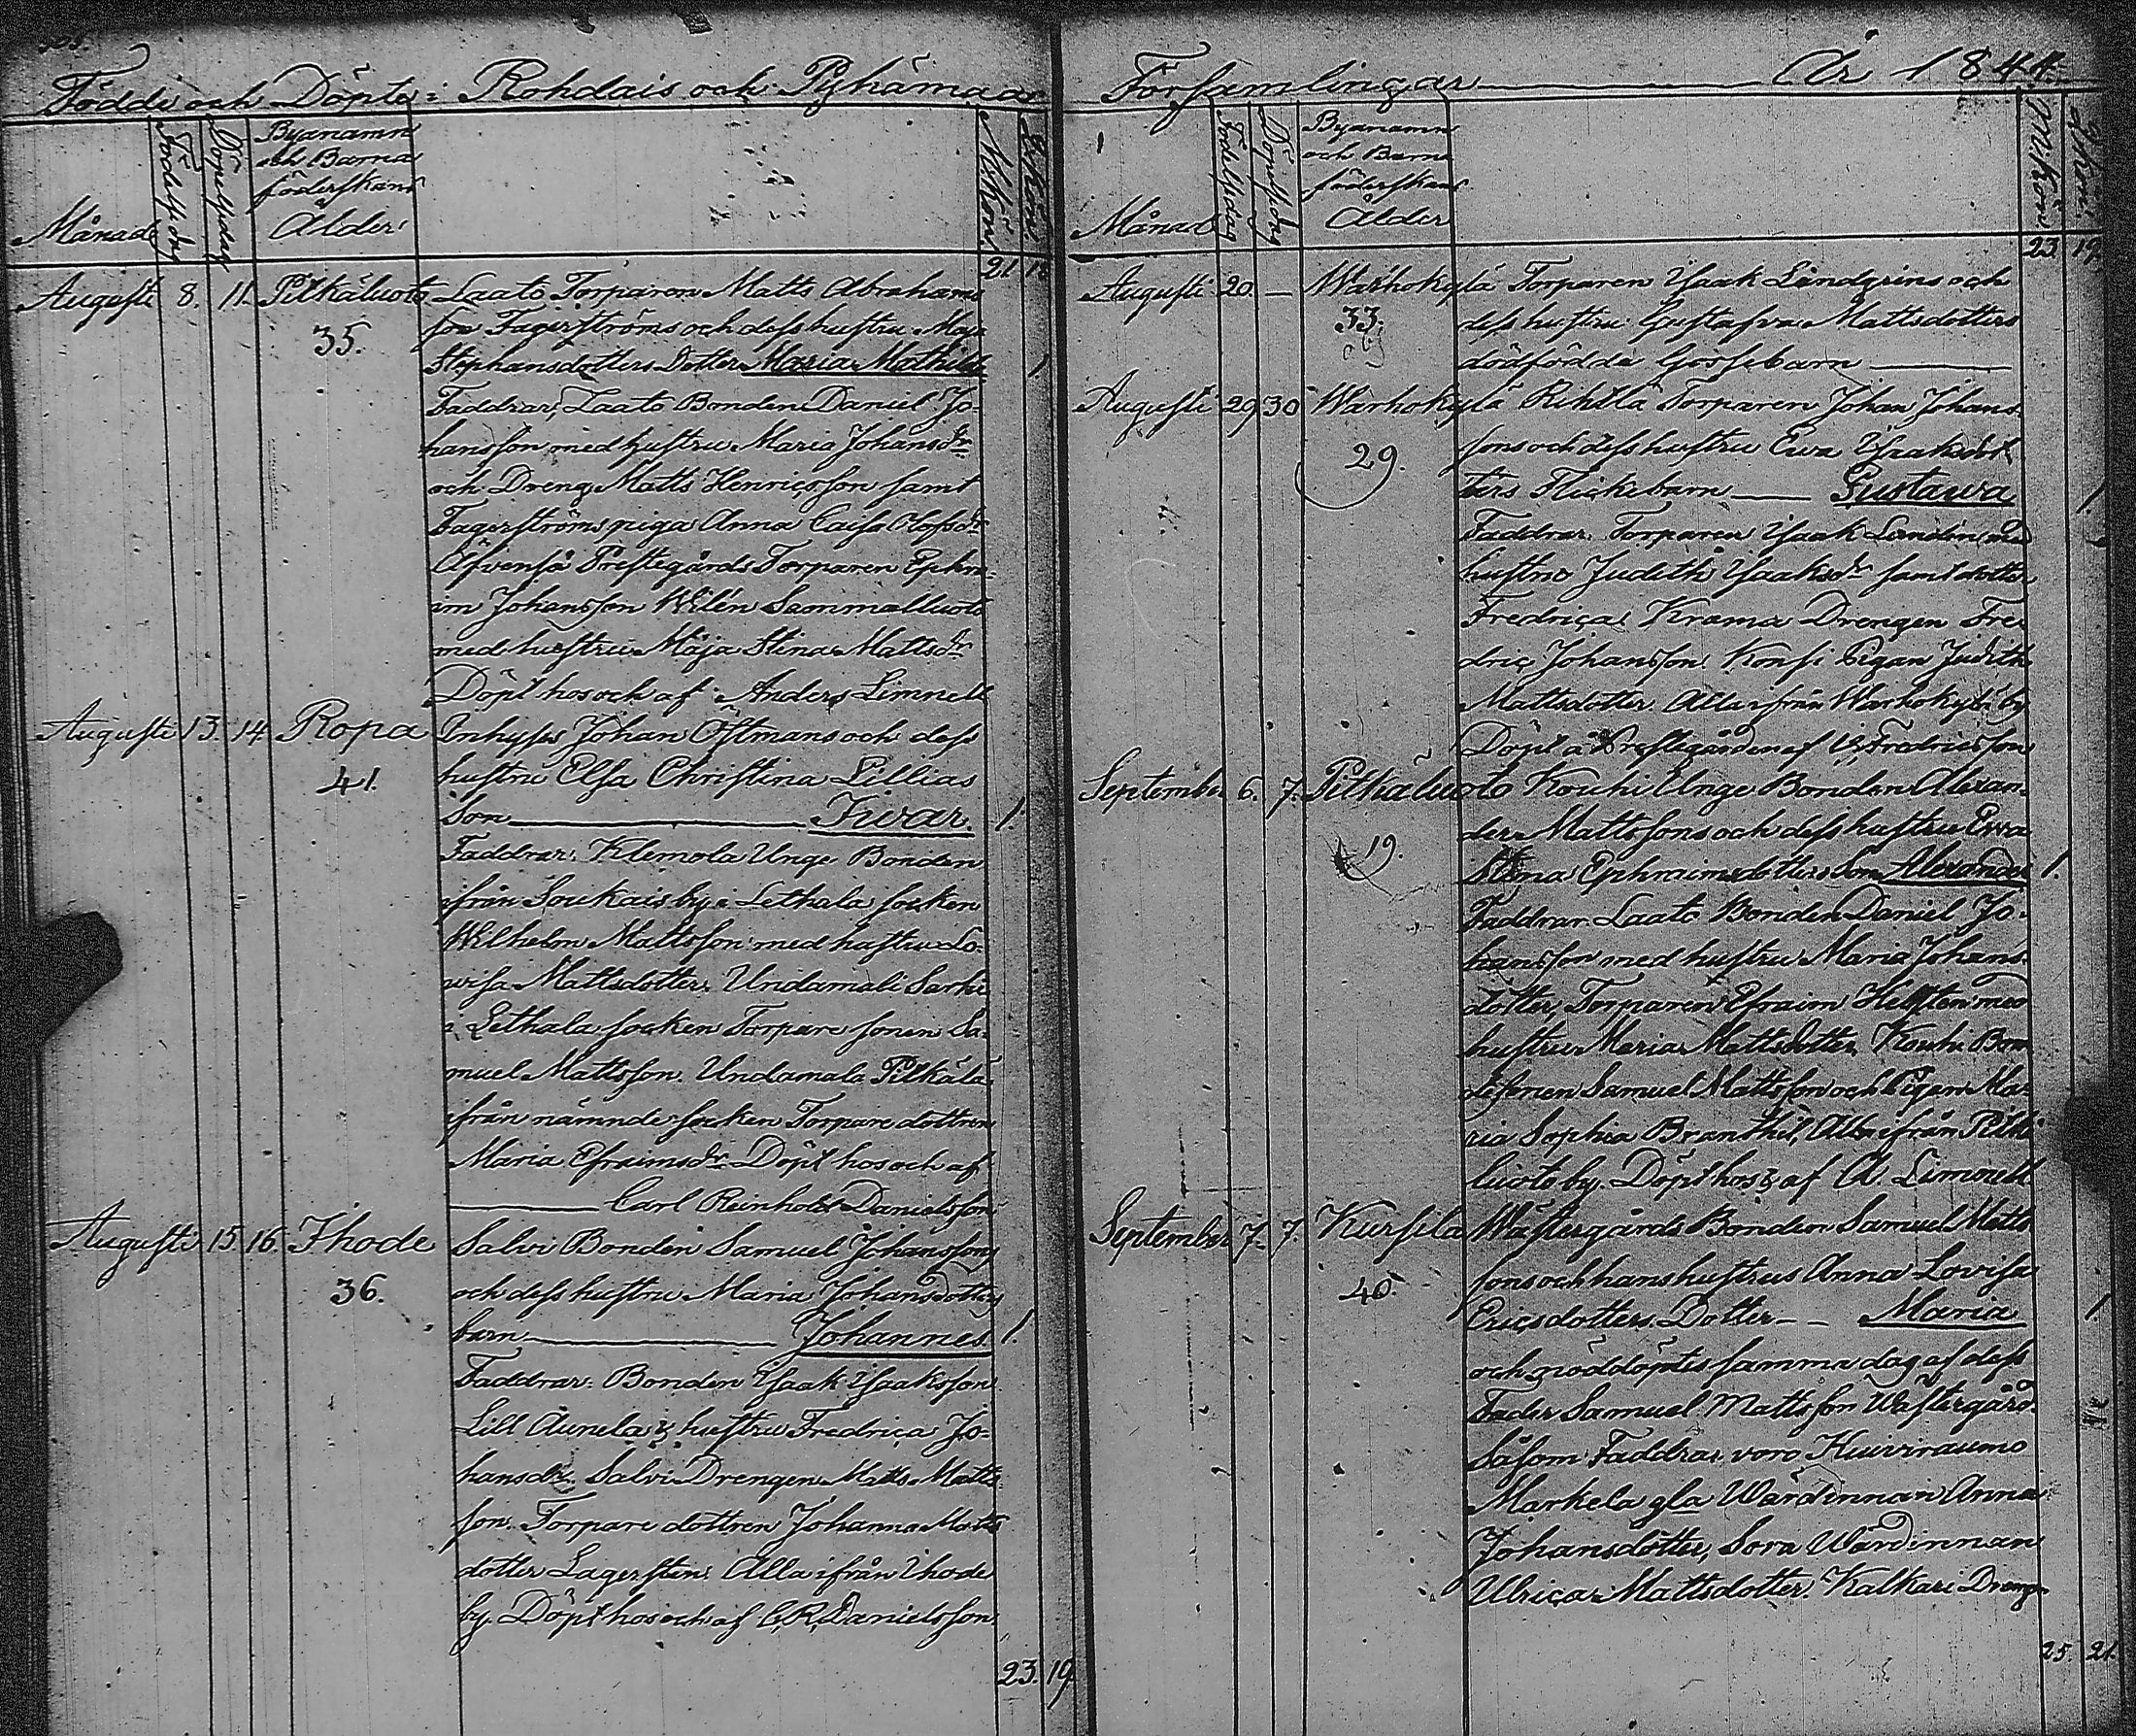 Födde och Döpte i Rohdais och Pyhämaa
Månad
Födelsedag
Döpelsedag
Byanamn
och Barna
föderskans
Ålder
M:kön
Q:kön
21. 18
Augusti 8. 11. Pitkäluoto Laato Torparen Matts Abrahams
son Fagerströms och dess hustru Maja
35.
Stephansdotters Dotter Maria Mathilda 1
Faddrar, Laato Bonden Daniel Jo-
hansson med hustru Maria Johansdr
och Dreng Matts Henricsson samt
Fagerströms piga Anna Caisa Olofsdr
Äfvenså Prestegårds Torparen Ephra-
im Johansson Wilén Sammalluoto
med hustru Maja Stina Mattsdr
Döpt hos och af Anders Limnell
Augusti 13. 14. Ropa Inhyses Johan Östmans och dess
41.
hustru Elsa Christina Lillias
Son Iivar. 1.
Faddrar. Klemola Unge Bonden
ifrån Soukais by i Lethala socken
Wilhelm Mattsson med hustru Lo-
visa Mattsdotter. Undamali Sarki
i Lethala socken Torpare sonen Sa-
muel Mattsson. Undamala Pitkälä
ifrån nämnde socken Torpare dottren
Maria Efraimsdr Döpt hos och af
Carl Reinhold Danielsson
Augusti 15. 16. Ihode Salvi Bonden Samuel Johanssons
36.
och dess hustru Maria Johansdotters
barn Johannes 1.
Faddrar. Bonden Isaak Isaksson
Lill Aunela & hustru Fredrica Jo-
hansdr. Salvi Drengen Matts Matts
son. Torpare dottren Johanna Matts
dotter Lagersten. Alla ifrån Ihode
by. Döpt hos och af C. R. Danielsson
23. 19.
Församlingar År 1844.
Månad
Födelsedag
Döpelsedag
Byanamn
och Barna
föderskans
Ålder
M:kön
Q:kön
23. 19.
Augusti 20. — Warhokylä Torparen Isaak Lindgrins och
33.
dess hustru Gustafva Mattsdotters
dödfödda Gossebarn
Augusti 29 30 Warhokylä Rihtlä Torparen Johan Johans-
29.
sons och dess hustru Ewa Isaksdot
ters Flickebarn Gustawa 1.
Faddrar. Torparen Isaak Lundin med
hustru Judith Isaaksdr samt dotter
Fredrica Krama Drengen Fre-
dric Johansson. Konsi Pigan Judith
Mattsdotter Alla ifrån Warhokylä by
Döpt å Prestegården af Fredricsson
September 6. 7. Pitkäluoto Kouhi Unge Bonden Alexan-
der Mattssons och dess hustru Ewa
19.
Stina Ephraimsdotters Son Alexander 1.
Faddrar Laato Bonden Daniel Jo-
hansson med hustru Maria Johans-
dotter, Torparen Efraim Hellsten med
hustru Maria Mattsdotter Kouhi Bon-
desonen Samuel Mattsson och Pigan Ma-
ria Sophia Alla ifrån Pitkä
luoto by. Döpt hos & af A. Limnell
September 7. 7. Kursila Wästergårds Bonden Samuel Matts
sons och hans hustrus Anna Lovisa
40.
Ericsdotters Dotter — — Maria 1.
och nöddöptes samma dag af dess
Fader Samuel Mattsson Wästergård.
Såsom Faddrar voro Huivirauma
Markela gla Wärdinnan Anna
Johansdotter, Sora Wärdinnan
Ulrica Mattsdotter. Kalkari Dreng
25. 21.